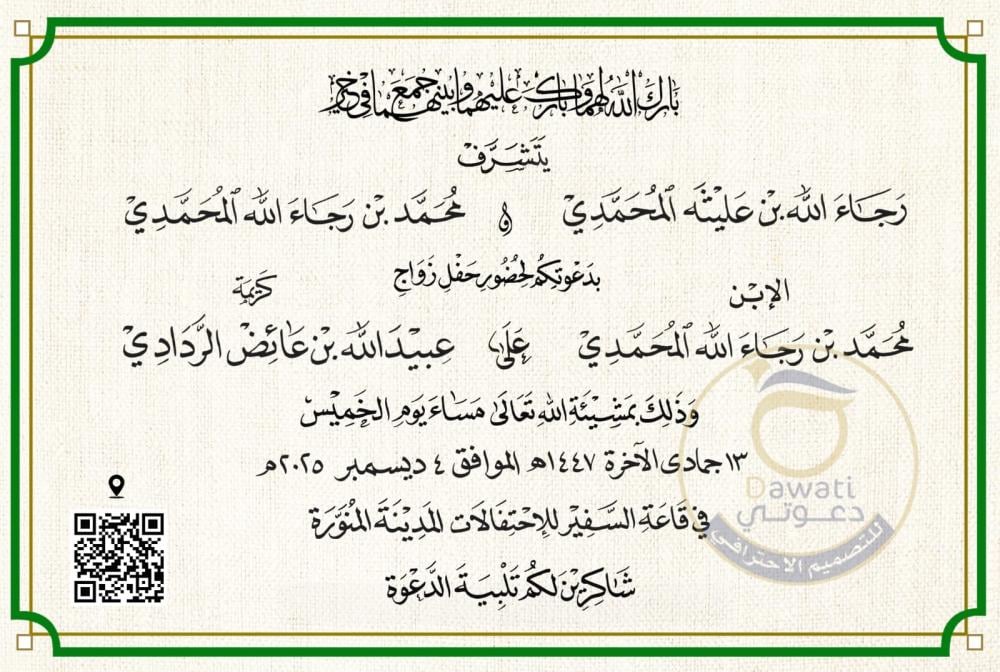 بَارَكَ اللَّهُ لَهُمَا وَبَارَكَ عَلَيْهِمَا وَجَمَعَ بَيْنَهُمَا فِي خَيْرٍ
يَتَشَرَّفُ
رَجَاءَ اللّٰه بْن عَلِيْثَه ٱلْمُحَمَّدِيْ و مُحَمَّد بْن رَجَاءَ اللّٰه ٱلْمُحَمَّدِيْ
بِدَعْوَتِكُمْ لِحُضُورِ حَفْلِ زَوَاجِ
الإِبْن كَرِيمَة
مُحَمَّد بْن رَجَاءَ اللّٰه ٱلْمُحَمَّدِيْ عَلَى عِبَيْدَاللّٰه بْن عَائِضْ الرَّدَادِيْ
وَذَلِكَ بِمَشِيْئَةِ اللهِ تَعَالَى مَسَاءَ يَوَمِ الخَمِيْسْ
١٣ جمادى الآخرة ١٤٤٧هـ الموافق ٤ ديسمبر ٢٠٢٥م
في قَاعَةِ السَّفِيْر لِلإِحْتِفَالَات المَدِيْنَةَ المُنَوَّرَة
شَاكِرِيْن لَكُمْ تَلْبِيَةَ الدَّعْوَة
Dawati
دعـوتـي
للتصميم الاحترافي